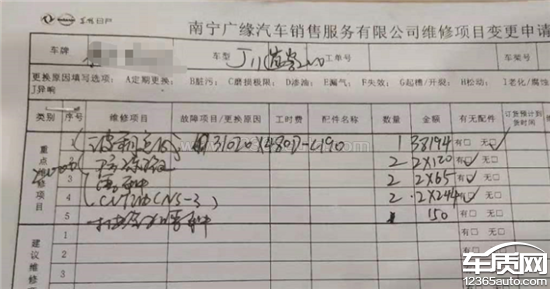 NISSAN 东风日产 南宁广缘汽车销售服务有限公司维修项目变更申请
车牌 车型 J11 工单号
更换原因填写选项: A定期更换; B脏污; C磨损极限; D渗油; E漏气; F失效; G起槽/开裂; H松动; I老化/腐蚀
J异响
类别 序号 维修项目 故障项目/更换原因 工时费 配件名称 数量 金额 有无配件 订货预计到货时间
重点维修项目
1 波箱总成 31020X480D-C190 1 38194 有□ 无□
2 防冻液 2 2X120 有□ 无□
3 2 2X65 有□ 无□
4 CVT油(NS-3) 2 2X244 有□ 无□
5 150 有□ 无□
建议维修
1 有□ 无□
2 有□ 无□
3 有□
4
车质网
12365auto.com